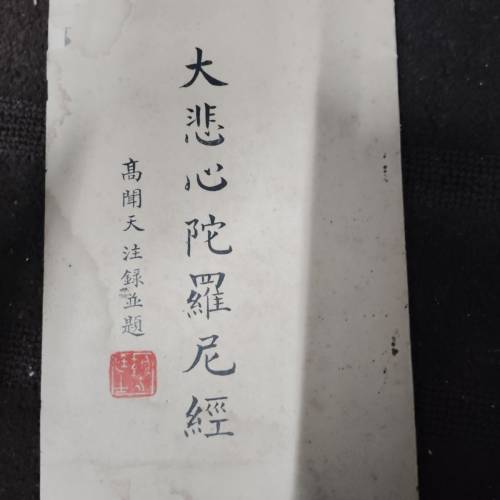 大悲心陀羅尼經
高聞天注録並題